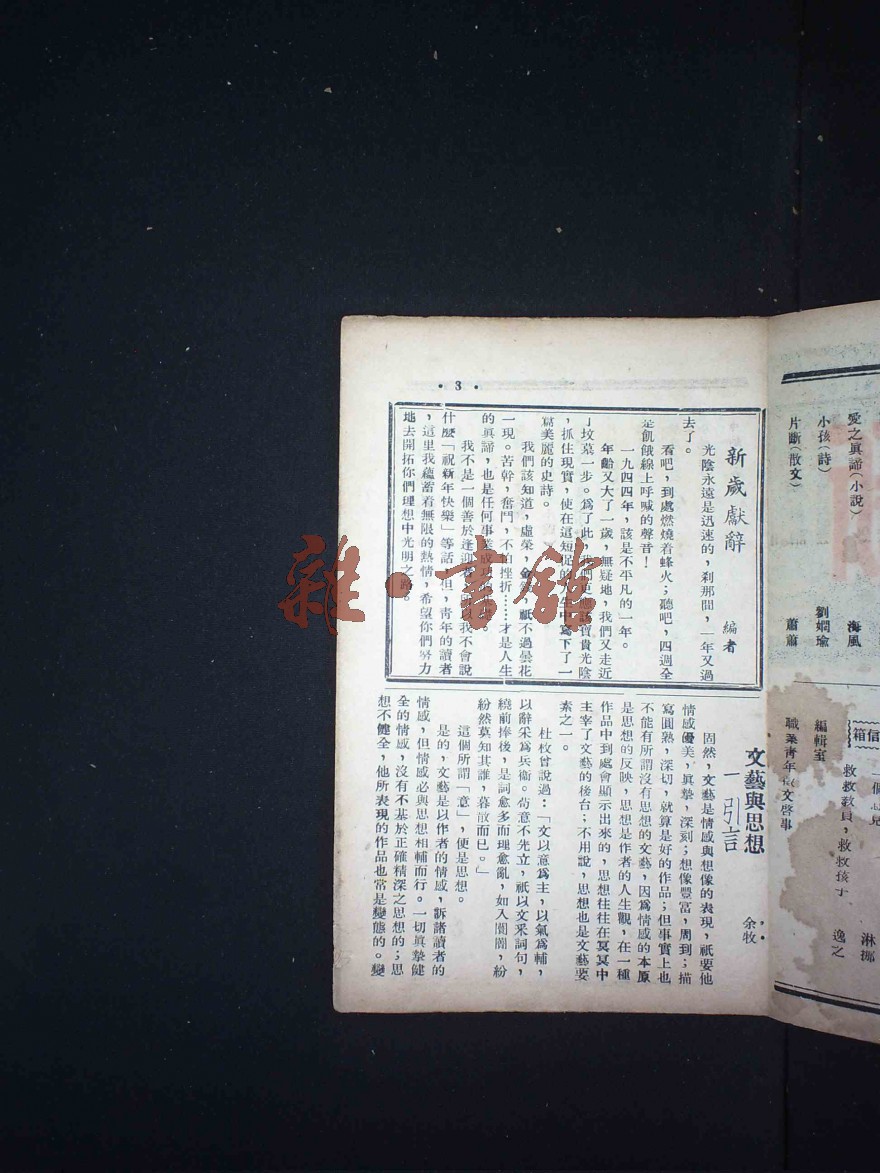 愛之眞諦（小說）
海風
小孩（詩）
劉嫻瑜
片斷（散文）
蕭蕭
信箱
救救敎員，救救孩子
逸之
淋挪
編輯室
職業青年
文啓事
• 3 •
新歲獻辭
編者
光陰永遠是迅速的，刹那間，一年又過
去了。
看吧，到處燃燒着蜂火；聽吧，四週全
是飢餓線上呼喊的聲音！
一九四四年，該是不平凡的一年。
年齡又大了一歲，無疑地，我們又走近
了坟墓一步。爲了此，我們更應該寶貴光陰
，抓住現實，使在這短促的人生中寫下了一
篇美麗的史詩。
我們該知道，虛榮，金錢，祇不過曇花
一現。苦幹，奮鬥，不怕挫折……才是人生
的眞諦，也是任何事業成功的
我不是一個善於逢迎 所以我不會說
什麼「祝新年快樂」等話，但，青年的讀者
，這里我蘊蓄着無限的熱情，希望你們努力
地去開拓你們理想中光明之路。
文藝與思想
余牧
一 引言
固然，文藝是情感與想像的表現，祇要他
情感優美，眞摯，深刻；想像豐富，周到；描
寫圓熟，深切，就算是好的作品；但事實上也
不能有所謂沒有思想的文藝，因爲情感的本原
是思想的反映，思想是作者的人生觀，在一種
作品中到處會顯示出來的，思想往往在冥冥中
主宰了文藝的後台；不用說，思想也是文藝要
素之一。
杜枚曾說過：「文以意爲主，以氣爲輔，
以辭采爲兵衞。苟意不先立，祇以文采詞句，
繞前捧後，是詞愈多而理愈亂，如入闤闠，紛
紛然莫知其誰，暮散而已。」
這個所謂「意」，便是思想。
是的，文藝是以作者的情感，訴諸讀者的
情感，但情感必與思想相輔而行。一切眞摯健
全的情感，沒有不基於正確精深之思想的；思
想不健全，他所表現的作品也常是變態的。變
雜·書館